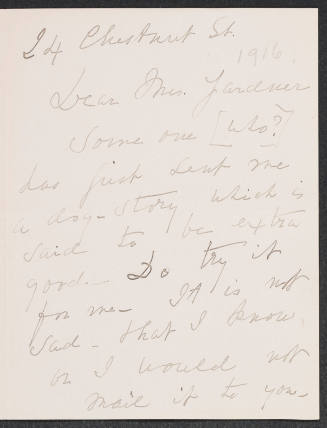 24 Chestnut St.
1916.
Dear Mrs. Gardner
Some one [who?]
has just sent me
a dog-story which is
said to be extra
good. Do try it
for me- It is not
sad - that I know,
or I would not
mail it to you-